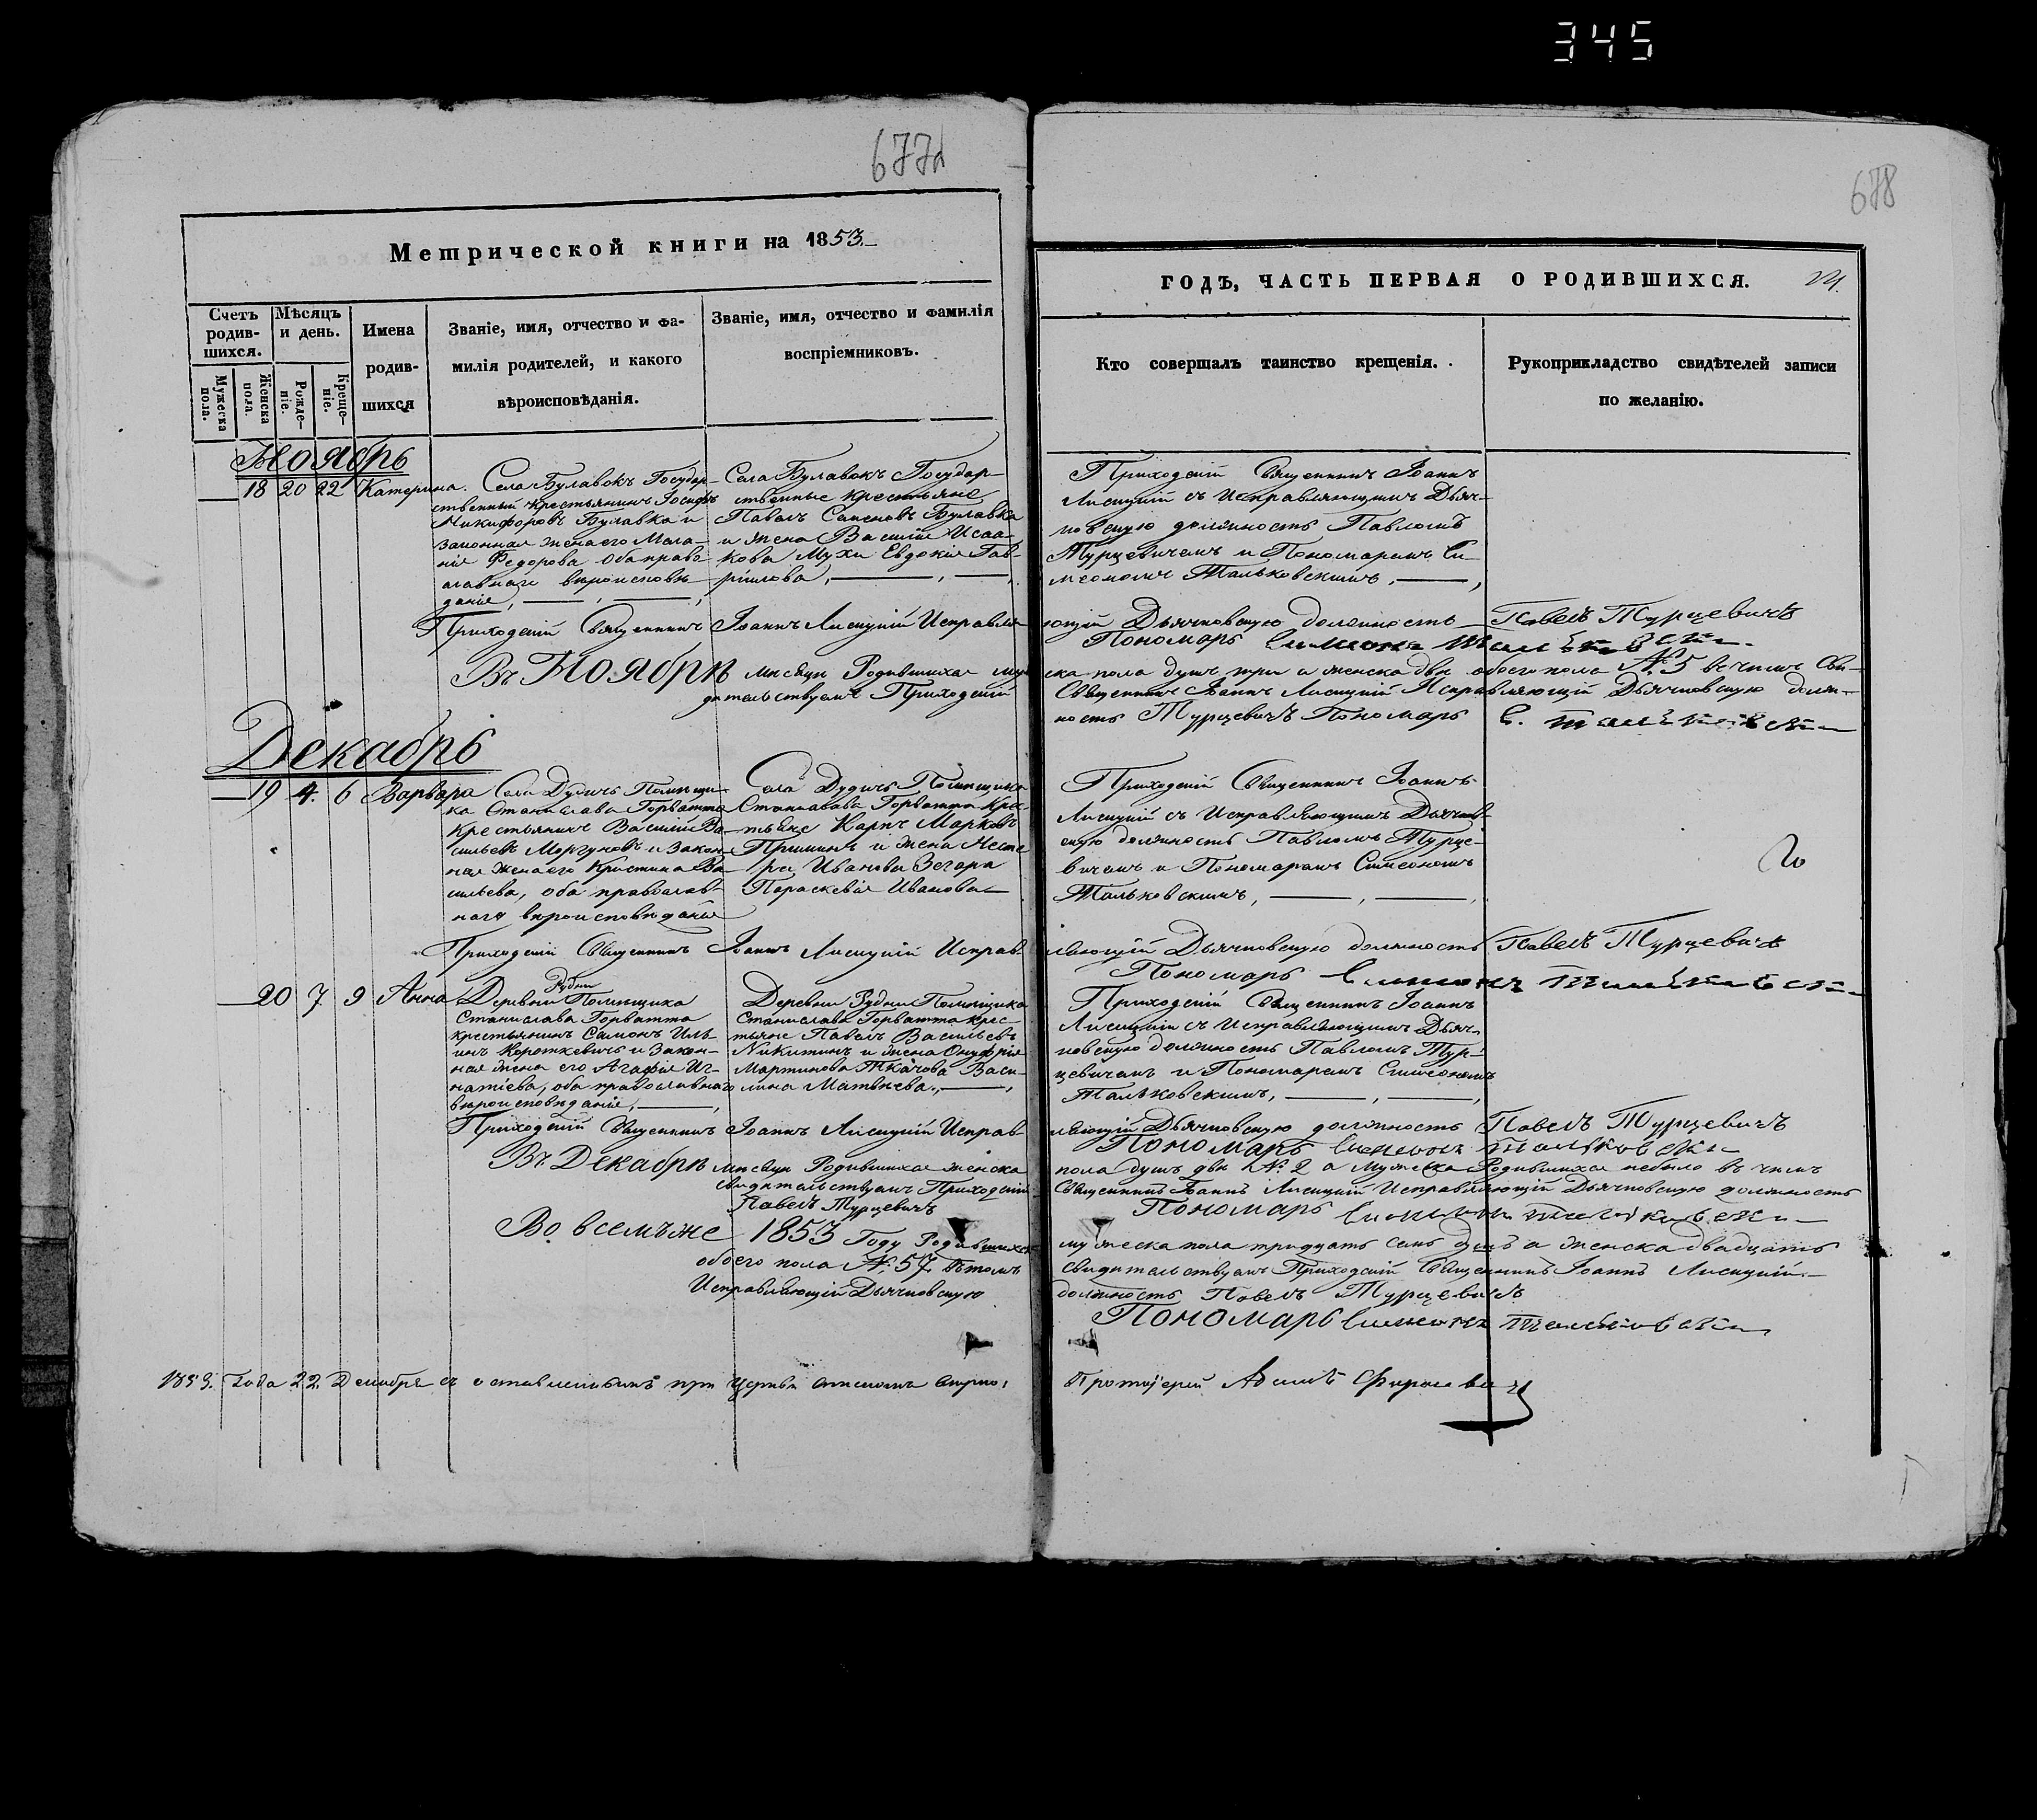 345
677
678
Метрической книги на 1853.
ГОДЪ, ЧАСТЬ ПЕРВАЯ О РОДИВШИХСЯ.
Счетъ родив-шихся.
Мужеска пола.
Женска пола.
Мѣсяцъ и день.
Рожде-ніе.
Креще-ніе.
Имена родив-шихся
Званіе, имя, отчество и фа-
милія родителей, и какого
вѣроисповѣданія.
Званіе, имя, отчество и фамилія
воспріемниковъ.
Кто совершалъ таинство крещенія.
Рукоприкладство свидѣтелей записи
по желанію.
Ноябрь
18 20 22 Катерина.
Села Булавокъ Государ-
ственный крестьянинъ Іосифъ
Никифоровъ Булавка и
законная жена его Мела-
нія Федорова оба право-
славнаго вѣроисповѣ-
данія,
Села Булавокъ Государ-
ственные крестьяне
Павелъ Семеновъ Булавка
и жена Василія Исаа-
кова Мухи Евдокія Гав-
ріилова,
Приходскій Священникъ Іоаннъ
Лисицкій съ Исправляющимъ Дьяч-
ковскую должность Павломъ
Турцевичемъ и Пономаремъ Си-
меономъ Тальковскимъ,
Приходскій Священникъ Іоаннъ Лисицкій Исправля-
ющій Дьячковскую должность Павелъ Турцевичъ
Пономарь Симеонъ Тальковскій
Въ Ноябрѣ мѣсяцѣ Родившихся му-
жеска пола душъ три и женска двѣ обоего пола № 5 въ чемъ Сви-
дѣтельствуемъ Приходскій
Священникъ Іоаннъ Лисицкій Исправляющій Дьячковскую долж-
ность Турцевичъ Пономарь С. Тальковскій
Декабрь
19 4. 6 Варвара
Села Дудичъ Помѣщи-
ка Станислава Горватта
Крестьянинъ Василій Ва-
сильевъ Моргуновъ и закон-
ная жена его Кристина Ва-
сильева, оба православ-
наго вѣроисповѣданія
Села Дудичъ Помѣщика
Станислава Горватта Крес-
тьяне Карпъ Марковъ
и жена Несте
ра Иванова
Параскевія Иванова
Приходскій Священникъ Іоаннъ
Лисицкій съ Исправляющимъ Дьячков-
скую должность Павломъ Турце-
вичемъ и Пономаремъ Симеономъ
Тальковскимъ,
Приходскій Священникъ Іоаннъ Лисицкій Исправ-
ляющій Дьячковскую должность Павелъ Турцевичъ
Пономарь Симеонъ Тальковскій
20 7 9 Анна
Деревни Рудни Помѣщика
Станислава Горватта
крестьянинъ Самонъ Иль-
инъ Короткевичъ и Закон-
ная жена его Агафія Иг-
натіева, оба православнаго
вѣроисповѣданія,
Деревни Рудни Помѣщика
Станислава Горватта крес-
тьяне Павелъ Васильевъ
Никитинъ и жена Онуфрія
Мартинова Ткачова Васи-
лина Матвѣева,
Приходскій Священникъ Іоаннъ
Лисицкій съ Исправляющимъ Дьяч-
ковскую должность Павломъ Тур-
цевичемъ и Пономаремъ Симеономъ
Тальковскимъ,
Приходскій Священникъ Іоаннъ Лисицкій Исправ-
ляющій Дьячковскую должность Павелъ Турцевичъ
Пономарь Симеонъ Тальковскій
Въ Декабрѣ мѣсяцѣ Родившихся женска
пола душъ двѣ № 2 а мужеска Родившихся небыло въ чемъ
свидѣтельствуемъ Приходскій
Священникъ Іоаннъ Лисицкій Исправляющій Дьячковскую должность
Павелъ Турцевичъ
Пономарь Симеонъ Тальковскій
Во всемъже 1853 Году Родившихся
мужеска пола тридцать семь душъ а женска двадцать
обоего пола № 57 Вътомъ
свидѣтельствуемъ Приходскій Священникъ Іоаннъ Лисицкій
Исправляющій Дьячковскую
должность Павелъ Турцевичъ
Пономарь Симеонъ Тальковскій
1853. Года 22. Декабря съ оставленнымъ при Церкви
Протоіерей